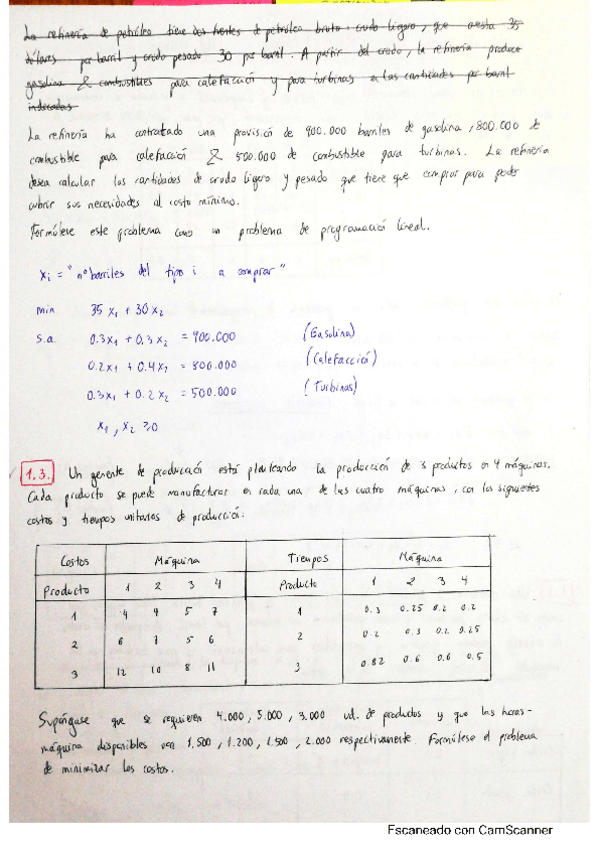 La refinería de petróleo tiene dos fuentes de petróleo bruto: crudo ligero, que cuesta 35
dólares por barril y crudo pesado 30 por barril. A partir del crudo, la refinería produce
gasolina & combustibles para calefacción y para turbinas en las cantidades por barril
indicadas
La refinería ha contratado una provisión de 900.000 barriles de gasolina, 800.000 de
combustible para calefacción & 500.000 de combustible para turbinas. La refinería
desea calcular las cantidades de crudo ligero y pesado que tiene que comprar para poder
cubrir sus necesidades al costo mínimo.
Formúlese este problema como un problema de programación lineal.
xi = "nº barriles del tipo i a comprar"
min 35 x1 + 30 x2
s.a. 0.3x1 + 0.3x2 = 900.000 (Gasolina)
0.2x1 + 0.4x2 = 800.000 (Calefacción)
0.3x1 + 0.2x2 = 500.000 (Turbinas)
x1, x2 ≥0
1.3. Un gerente de producción está planteando la producción de 3 productos en 4 máquinas.
Cada producto se puede manufacturar en cada una de las cuatro máquinas, con los siguientes
costos y tiempos unitarios de producción:
Costos Máquina Tiempos Máquina
Producto 1 2 3 4 Producto 1 2 3 4
1 4 4 5 7 1 0.3 0.25 0.2 0.2
2 6 7 5 6 2 0.2 0.3 0.2 0.25
3 12 10 8 11 3 0.82 0.6 0.6 0.5
Supóngase que se requieren 4.000, 5.000, 3.000 ud. de productos y que las horas-
máquina disponibles son 1.500, 1.200, 1.500, 2.000 respectivamente. Formúlese el problema
de minimizar los costos.
Escaneado con CamScanner